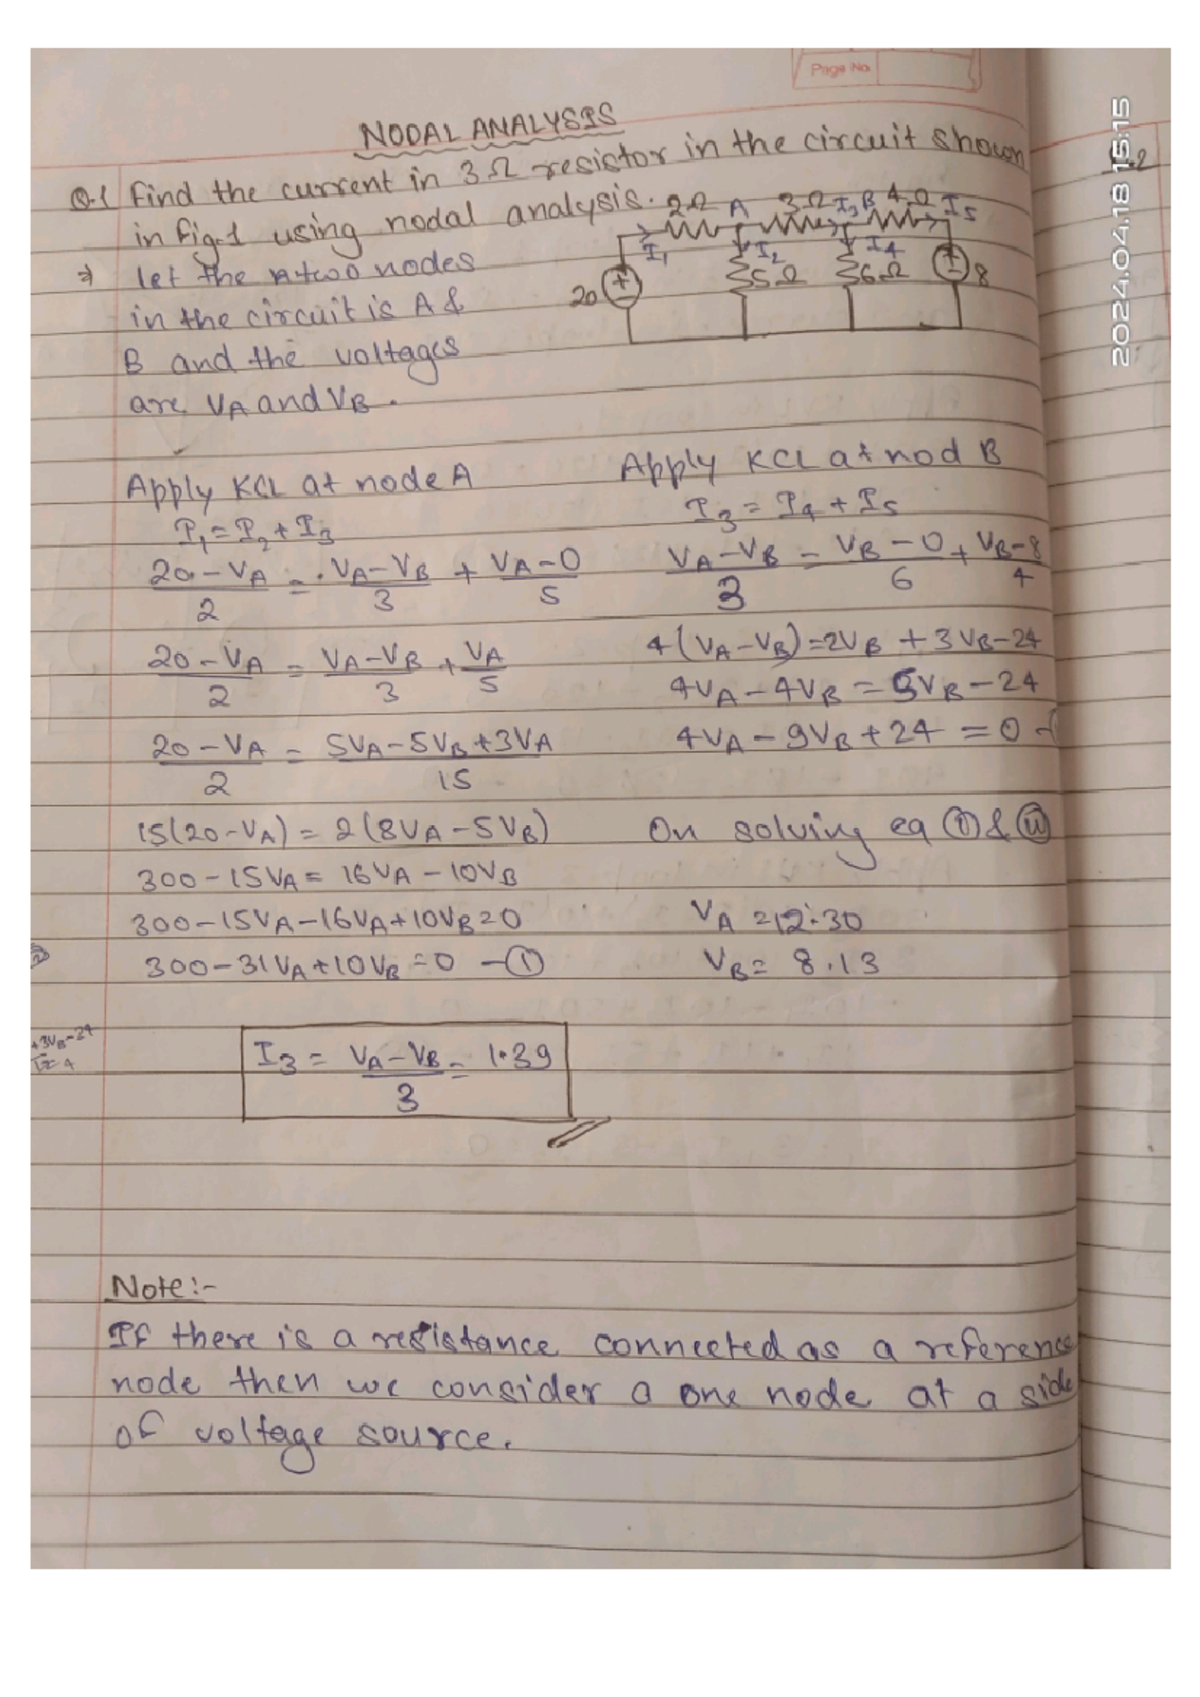 Page No.
NODAL ANALYSIS
Q.1 Find the current in 3Ω resistor in the circuit shown
in fig-1 using nodal analysis.
2Ω A 3Ω I3 B 4Ω I5
I1 I2 I4
20 5Ω 6Ω 8
⇒ let the two nodes
in the circuit is A &
B and the voltages
are VA and VB.
Apply KCL at node A
I1 = I2 + I3
20-VA/2 = VA-VB/3 + VA-0/5
20-VA/2 = VA-VB/3 + VA/5
20-VA/2 = 5VA-5VB+3VA/15
15(20-VA) = 2(8VA-5VB)
300-15VA = 16VA-10VB
300-15VA-16VA+10VB=0
300-31VA+10VB=0 -①
Apply KCL at nod B
I3 = I4 + I5
VA-VB/3 = VB-0/6 + VB-8/4
4(VA-VB)=2VB+3VB-24
4VA-4VB=5VB-24
4VA-9VB+24=0 -
On solving eq ① & ②
VA = 12.30
VB = 8.13
+3VB-24
I3 = VA-VB/3 = 1.39
Note:-
If there is a resistance connected as a reference
node then we consider a one node at a side
of voltage source.
2024.04.18 15:15